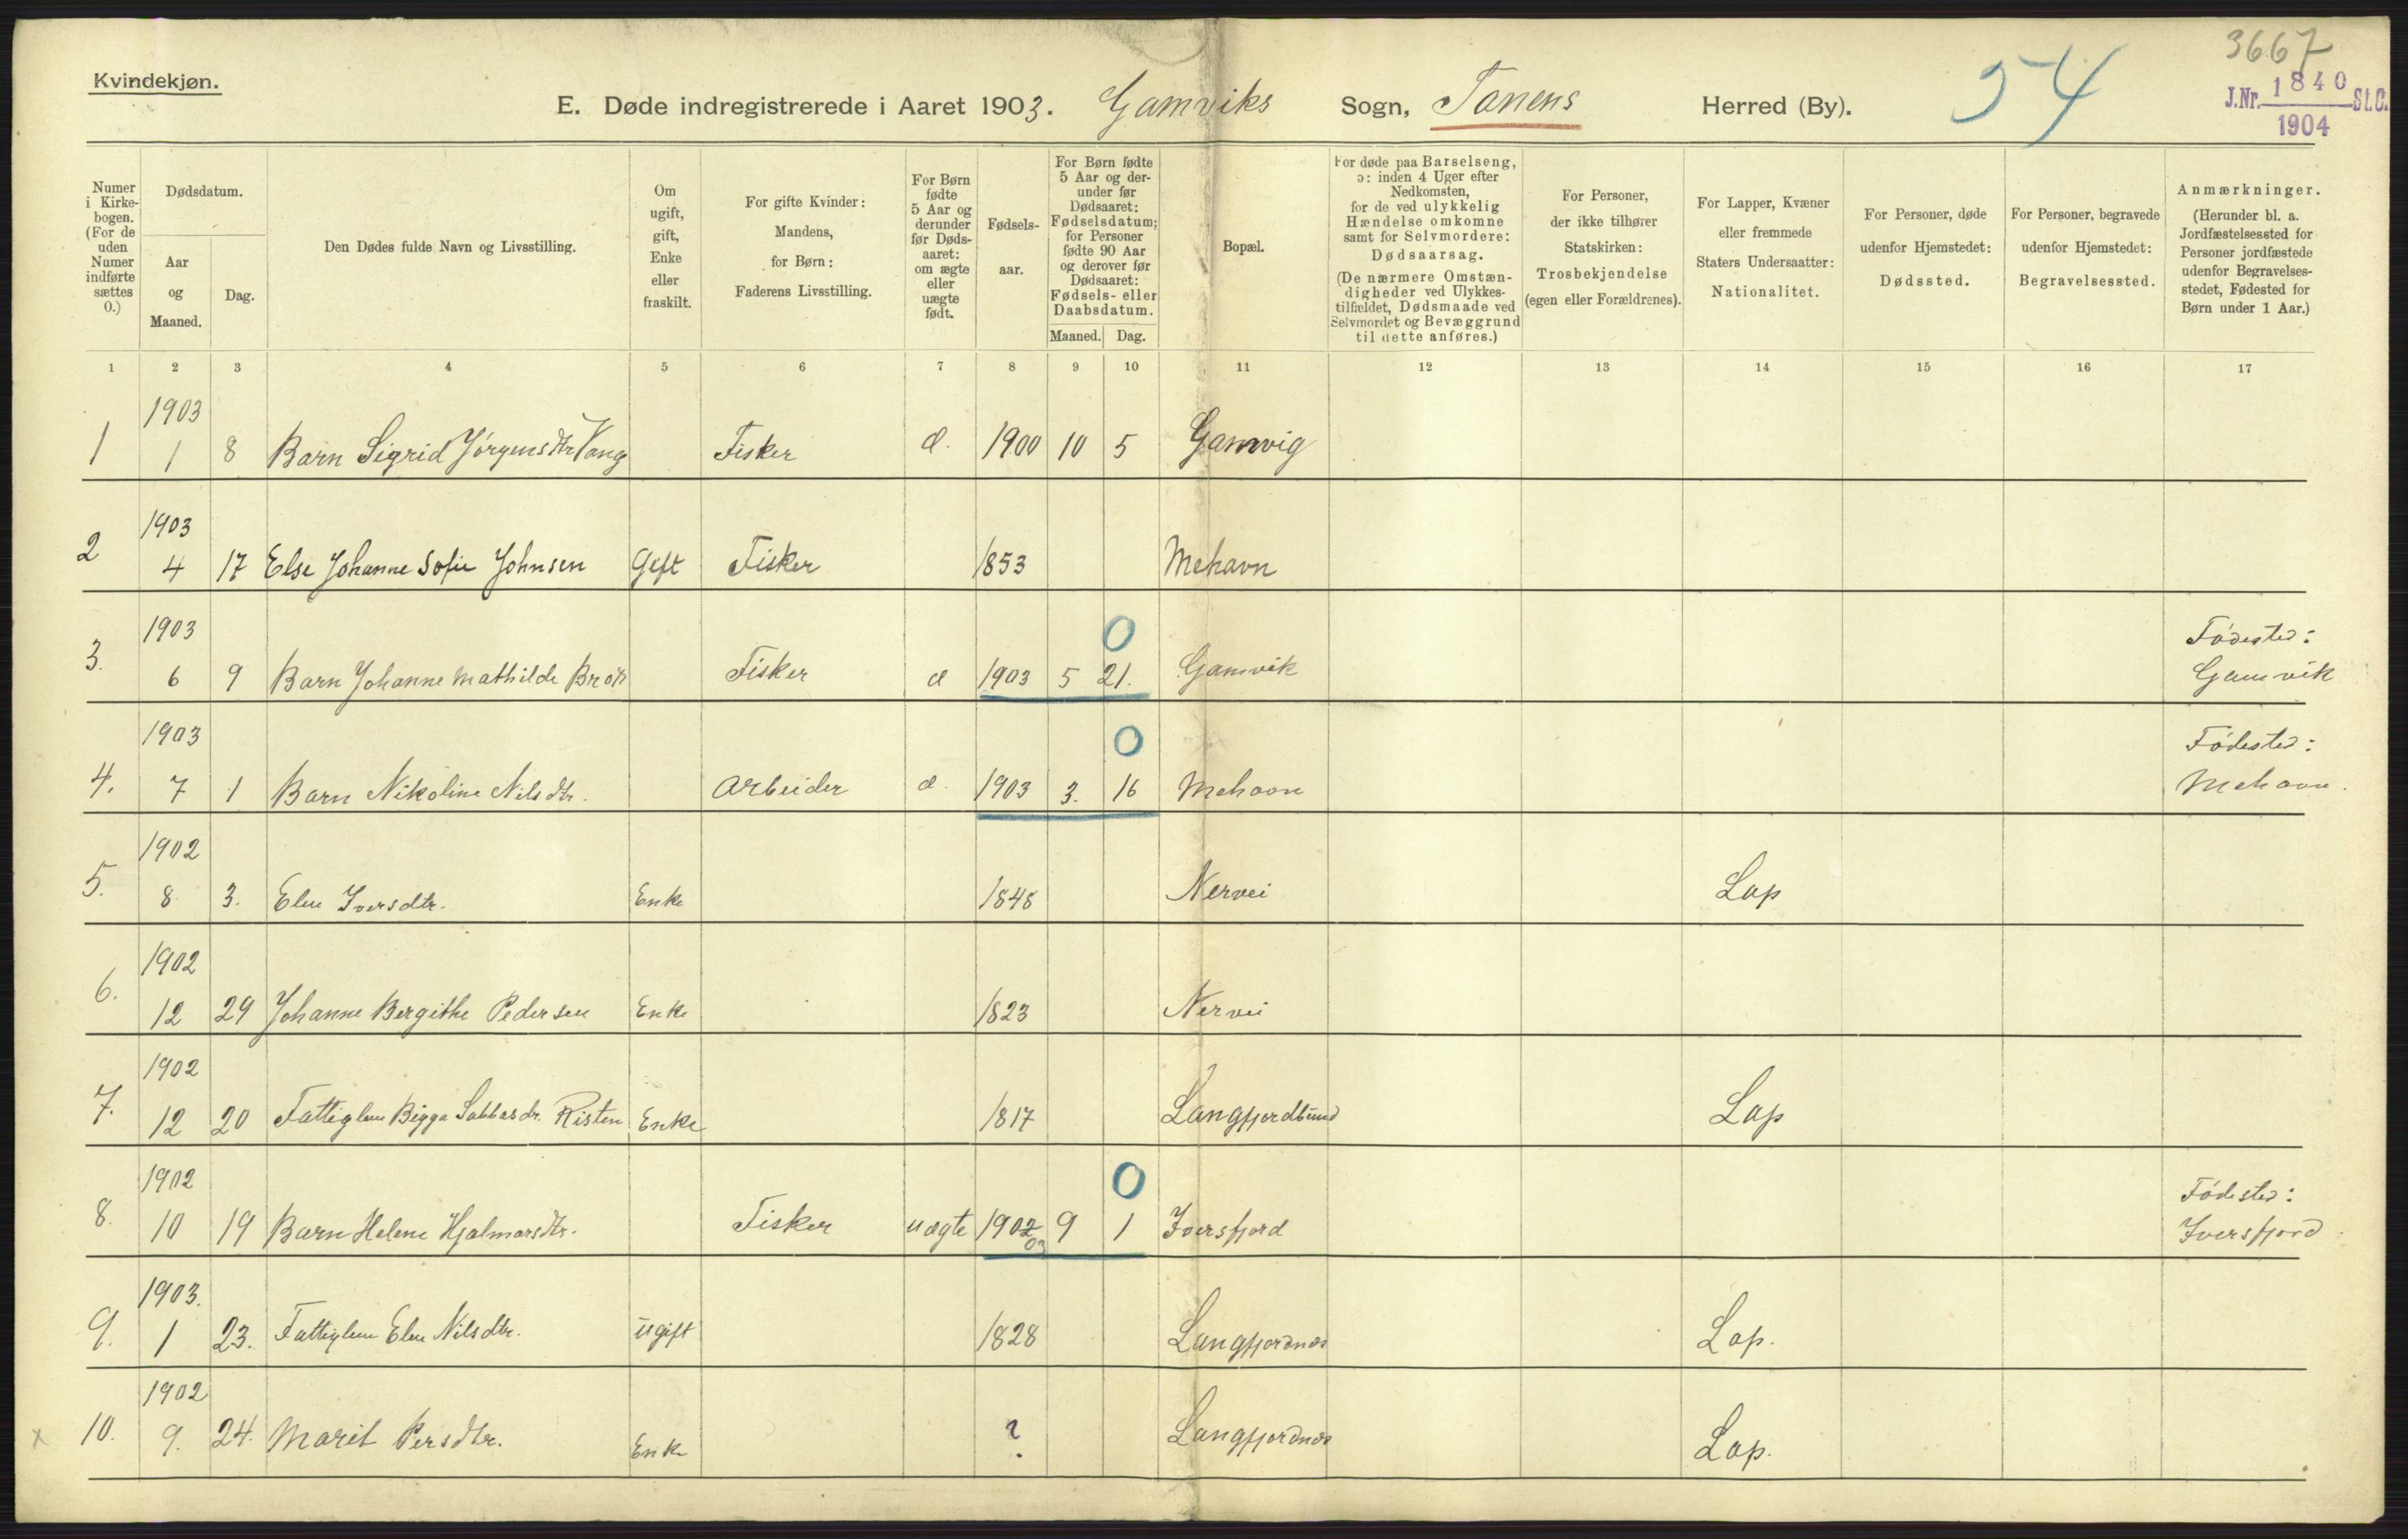 3667
Kvindekjøn.
J.Nr. 1840 St.C.
1904
E. Døde indregistrerede i Aaret 1903. Gamviks Sogn, Tanens Herred (By). 54
Numer i Kirkebogen. (For de uden Numer indførte sættes 0.)
Dødsdatum.
Aar og Maaned.
Dag.
Den Dødes fulde Navn og Livsstilling.
Om ugift, gift, Enke eller fraskilt.
For gifte Kvinder: Mandens, for Børn: Faderens Livsstilling.
For Børn fødte 5 Aar og derunder før Dødsaaret: om ægte eller uægte født.
Fødselsaar.
For Børn fødte 5 Aar og derunder før Dødsaaret: Fødselsdatum; for Personer fødte 90 Aar og derover før Dødsaaret: Fødsels- eller Daabsdatum.
Maaned. Dag.
Bopæl.
For døde paa Barselseng, ɔ: inden 4 Uger efter Nedkomsten, for de ved ulykkelig Hændelse omkomne samt for Selvmordere: Dødsaarsag. (De nærmere Omstændigheder ved Ulykkestilfældet, Dødsmaade ved Selvmordet og Bevæggrund til dette anføres.)
For Personer, der ikke tilhører Statskirken: Trosbekjendelse (egen eller Forældrenes).
For Lapper, Kvæner eller fremmede Staters Undersaatter: Nationalitet.
For Personer, døde udenfor Hjemstedet: Dødssted.
For Personer, begravede udenfor Hjemstedet: Begravelsessted.
Anmærkninger. (Herunder bl. a. Jordfæstelsessted for Personer jordfæstede udenfor Begravelsesstedet, Fødested for Børn under 1 Aar.)
1 2 3 4 5 6 7 8 9 10 11 12 13 14 15 16 17
1903
1 1 8 Barn Sigrid Jørgensdtr Vang Fisker 1900 10 5 Gamvig
1903
2 4 17 Else Johanne Sofie Johnsen Gift Fisker 1853 Mehavn
1903 0 Födested:
3. 6 9 Barn Johanne Mathilde Fisker 1903 5 21. Gamvik Gamvik
1903 0 Födested:
4. 7 1 Barn Nikoline Nilsdtr. Arbeider 1903 3. 16 Mehavn Mehavn.
1902
5. 8 3. Elen Iversdtr. Enke 1848 Nervei Lap
1902
6. 12 29 Johanne Bergithe Pedersen Enke 1823 Nervei
1902
7. 12 20 Fattiglem Bigga Sabbasdr. Risten Enke 1817 Langfjordbund Lap
1902 0 Födested:
8. 10 19 Barn Helene Hjalmarsdtr. Fisker uægte 1902 03 9 1 Iversfjord Iversfjord
1903.
9. 1 23. Fattiglem Elen Nilsdtr. Ugift 1828 Langfjordnæs Lap.
1902
x 10. 9. 24. Marit Persdtr. Enke ? Langfjordnæs Lap.